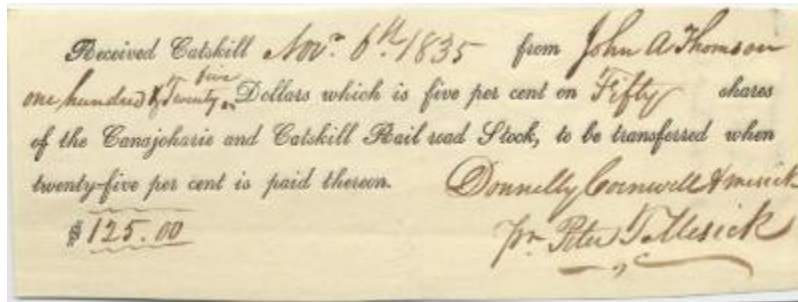 Received Catskill Novr. 6th. 1835 from John A Thomson
five
one hundred & Twenty Dollars which is five per cent on Fifty shares
of the Canajoharie and Catskill Rail road Stock, to be transferred when
twenty-five per cent is paid thereon. Donnelly Cornwell & Mesick
$125.00 pr. Peter T. Mesick